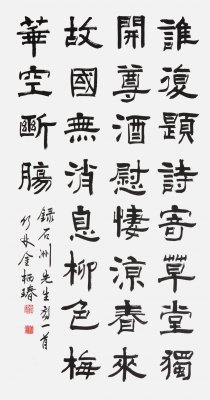 誰復題詩寄草堂獨
開尊酒慰悽涼春來
故國無消息柳色梅
華空斷腸
錄石洲先生一首
金栖